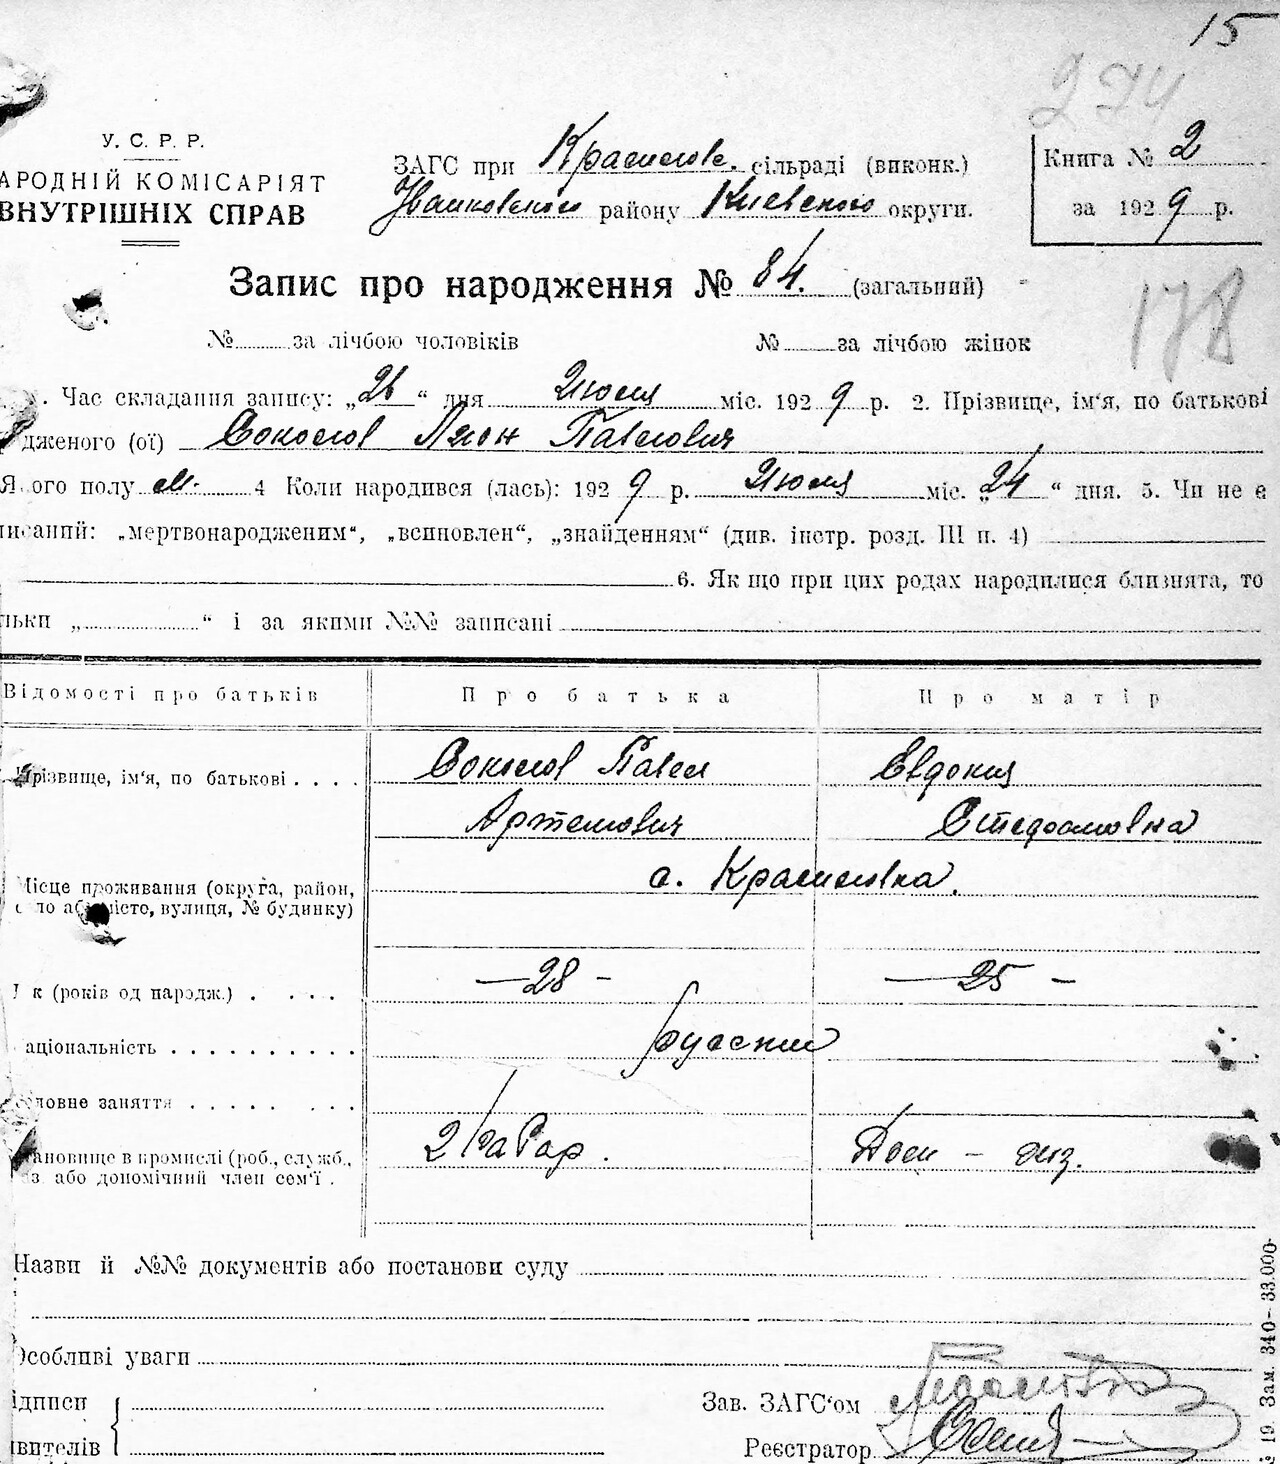 15
274
У. С. Р. Р.
АРОДНІЙ КОМІСАРІЯТ
ВНУТРІШНІХ СПРАВ
ЗАГС при Красилов. сільраді (виконк.)
Иванковском району Киевского округи.
Книга № 2
за 1929 р.
Запис про народження № 84. (загальний)
178
№ за лічбою чоловіків № за лічбою жінок
Час складання запису: „26“ дня Июля міс. 1929 р. 2. Прізвище, ім'я, по батькові
дженого (ої) Соколов Павлович
ого полу м. 4 Коли народився (лась): 1929 р. Июля міс. „24“ дня. 5. Чи не є
писаний: „мертвонародженим“, „всиновлен“, „знайденням“ (див. інстр. розд. III п. 4)
6. Як що при цих родах народилися близнята, то
льки „ “ і за якими №№ записані
Відомості про батьків Про батька Про матір
Прізвище, ім'я, по батькові . . . . Соколов Павел Евдокия
Артемович
с. Красиловка.
Місце проживання (округа, район,
ло або місто, вулиця, № будинку)
к (років од народж.) . . . . . — 28 — — 25 —
аціональність . . . . . . . . . . русские
ловне заняття . . . . . . . . .
ановище в промислі (роб., служб., Дом –
з або допомічний член сем'ї .
Назви й №№ документів або постанови суду
Особливі уваги
ідписи
явителів
Зав. ЗАГС'ом
Реєстратор
19. Зам. 340–33.000